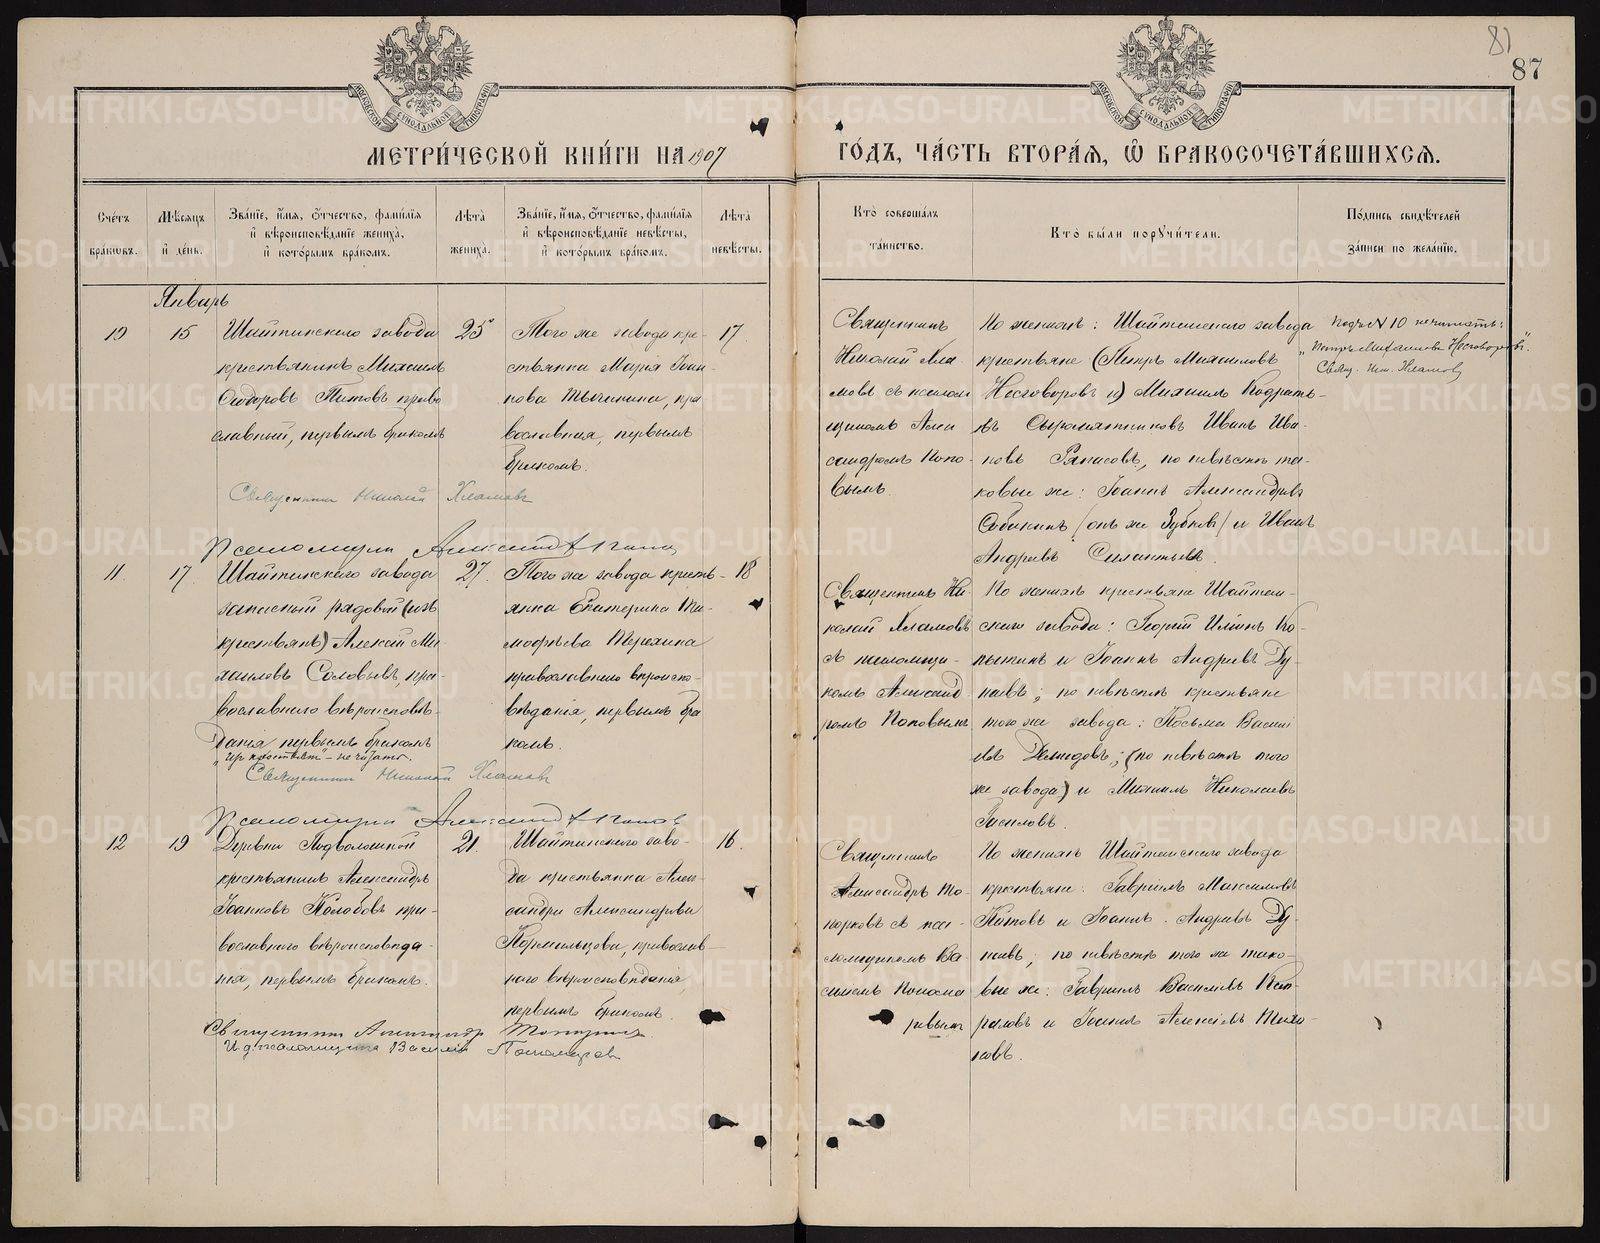 81
87
МЕТРИ́ЧЕСКОЙ КНИ́ГИ НА 1907
ГО́ДЪ, ЧА́СТЬ ВТОРА́Я, Ѽ БРАКОСОЧЕТА́ВШИХСЯ.
Сче́тъ бра́ковъ.
Мѣ́сяцъ и де́нь.
Зва́нїе, и́мя, о́тчество, фами́лїя и вѣроисповѣ́данїе жениха̀, и кото́рымъ бра́комъ.
Лѣ́та жениха̀.
Зва́нїе, и́мя, о́тчество, фами́лїя и вѣроисповѣ́данїе невѣ́сты, и кото́рымъ бра́комъ.
Лѣ́та невѣ́сты.
Кто̀ соверша́лъ та́инство.
Кто̀ бы́ли поручи́тели.
По́дпись свидѣ́телей за́писи по жела́нїю.
Январь
10
15
Шайтинскаго завода
крестьянинъ Михаилъ
Ѳедоровъ Титовъ право
славный, первымъ бракомъ
25
Того же завода кре-
стьянка Марія Іоан-
нова, пра
вославная, первымъ
бракомъ.
17.
Священникъ
Николай Хла
мовъ съ псалом
щикомъ Алек
сандромъ Попо-
вымъ.
По женихѣ: Шайтанскаго завода
крестьяне (Петръ Михаиловъ
Несговоровъ и) Михаилъ Кодрать-
евъ Сыромятниковъ Иванъ Ива-
новъ, по невѣстѣ та-
ковые же: Іоаннъ Александровъ
Собакинъ (онъ же Зубковъ) и Иванъ
Андреевъ Силантьевъ.
Подъ N 10 нечитать:
"Петръ Михаиловъ Несговоровъ и".
Свящ. Ник. Хламовъ
Священникъ Николай Хламовъ
Псаломщикъ Александръ Поповъ
11.
17.
Шайтинскаго завода
запасный рядовой (изъ
крестьянъ) Алексѣй Ми-
хаиловъ Соловьевъ, пра-
вославнаго вѣроисповѣ-
данія, первымъ бракомъ
27.
Того же завода кресть-
янка Екатерина Ти-
мофѣева Терехина
православнаго вѣроиспо-
вѣданія, первымъ бра
комъ.
18
Священникъ Ни-
колай Хламовъ
съ псаломщи-
комъ Александ
ромъ Поповымъ
По женихѣ крестьяне Шайтан-
скаго завода: Георгій Илiинъ Ко-
пытинъ и Іоаннъ Андреевъ Ду-
наевъ; по невѣстѣ крестьяне
того же завода: Косьма Васил
евъ Демидовъ; (по невѣстѣ того
же завода) и Михаилъ Николаевъ
- не читать.
Священникъ Николай Хламовъ
Псаломщикъ Александръ Поповъ
12
19
Деревни Подволошной
крестьянинъ Александръ
Іоанновъ Колобовъ пра-
вославнаго вѣроисповѣда-
нія, первымъ бракомъ.
21.
Шайтинскаго заво-
да крестьянка Алек-
сандра Александрова
Кормильцова, православ-
наго вѣроисповѣданія,
первымъ бракомъ.
16.
Священникъ
Александръ То-
порковъ съ пса-
ломщикомъ Ва
силіемъ Понома
ревымъ
По женихѣ Шайтанскаго завода
крестьяне: Гавріилъ Максимовъ
Титовъ и Іоаннъ Андреевъ Ду-
наевъ; по невѣстѣ того же тако-
вые же: Гавріилъ Васильевъ Кап-
раловъ и Іоаннъ Алексѣевъ Тихо-
новъ.
Священникъ Александръ Топорковъ
И. д. псаломщика Василій Пономаревъ